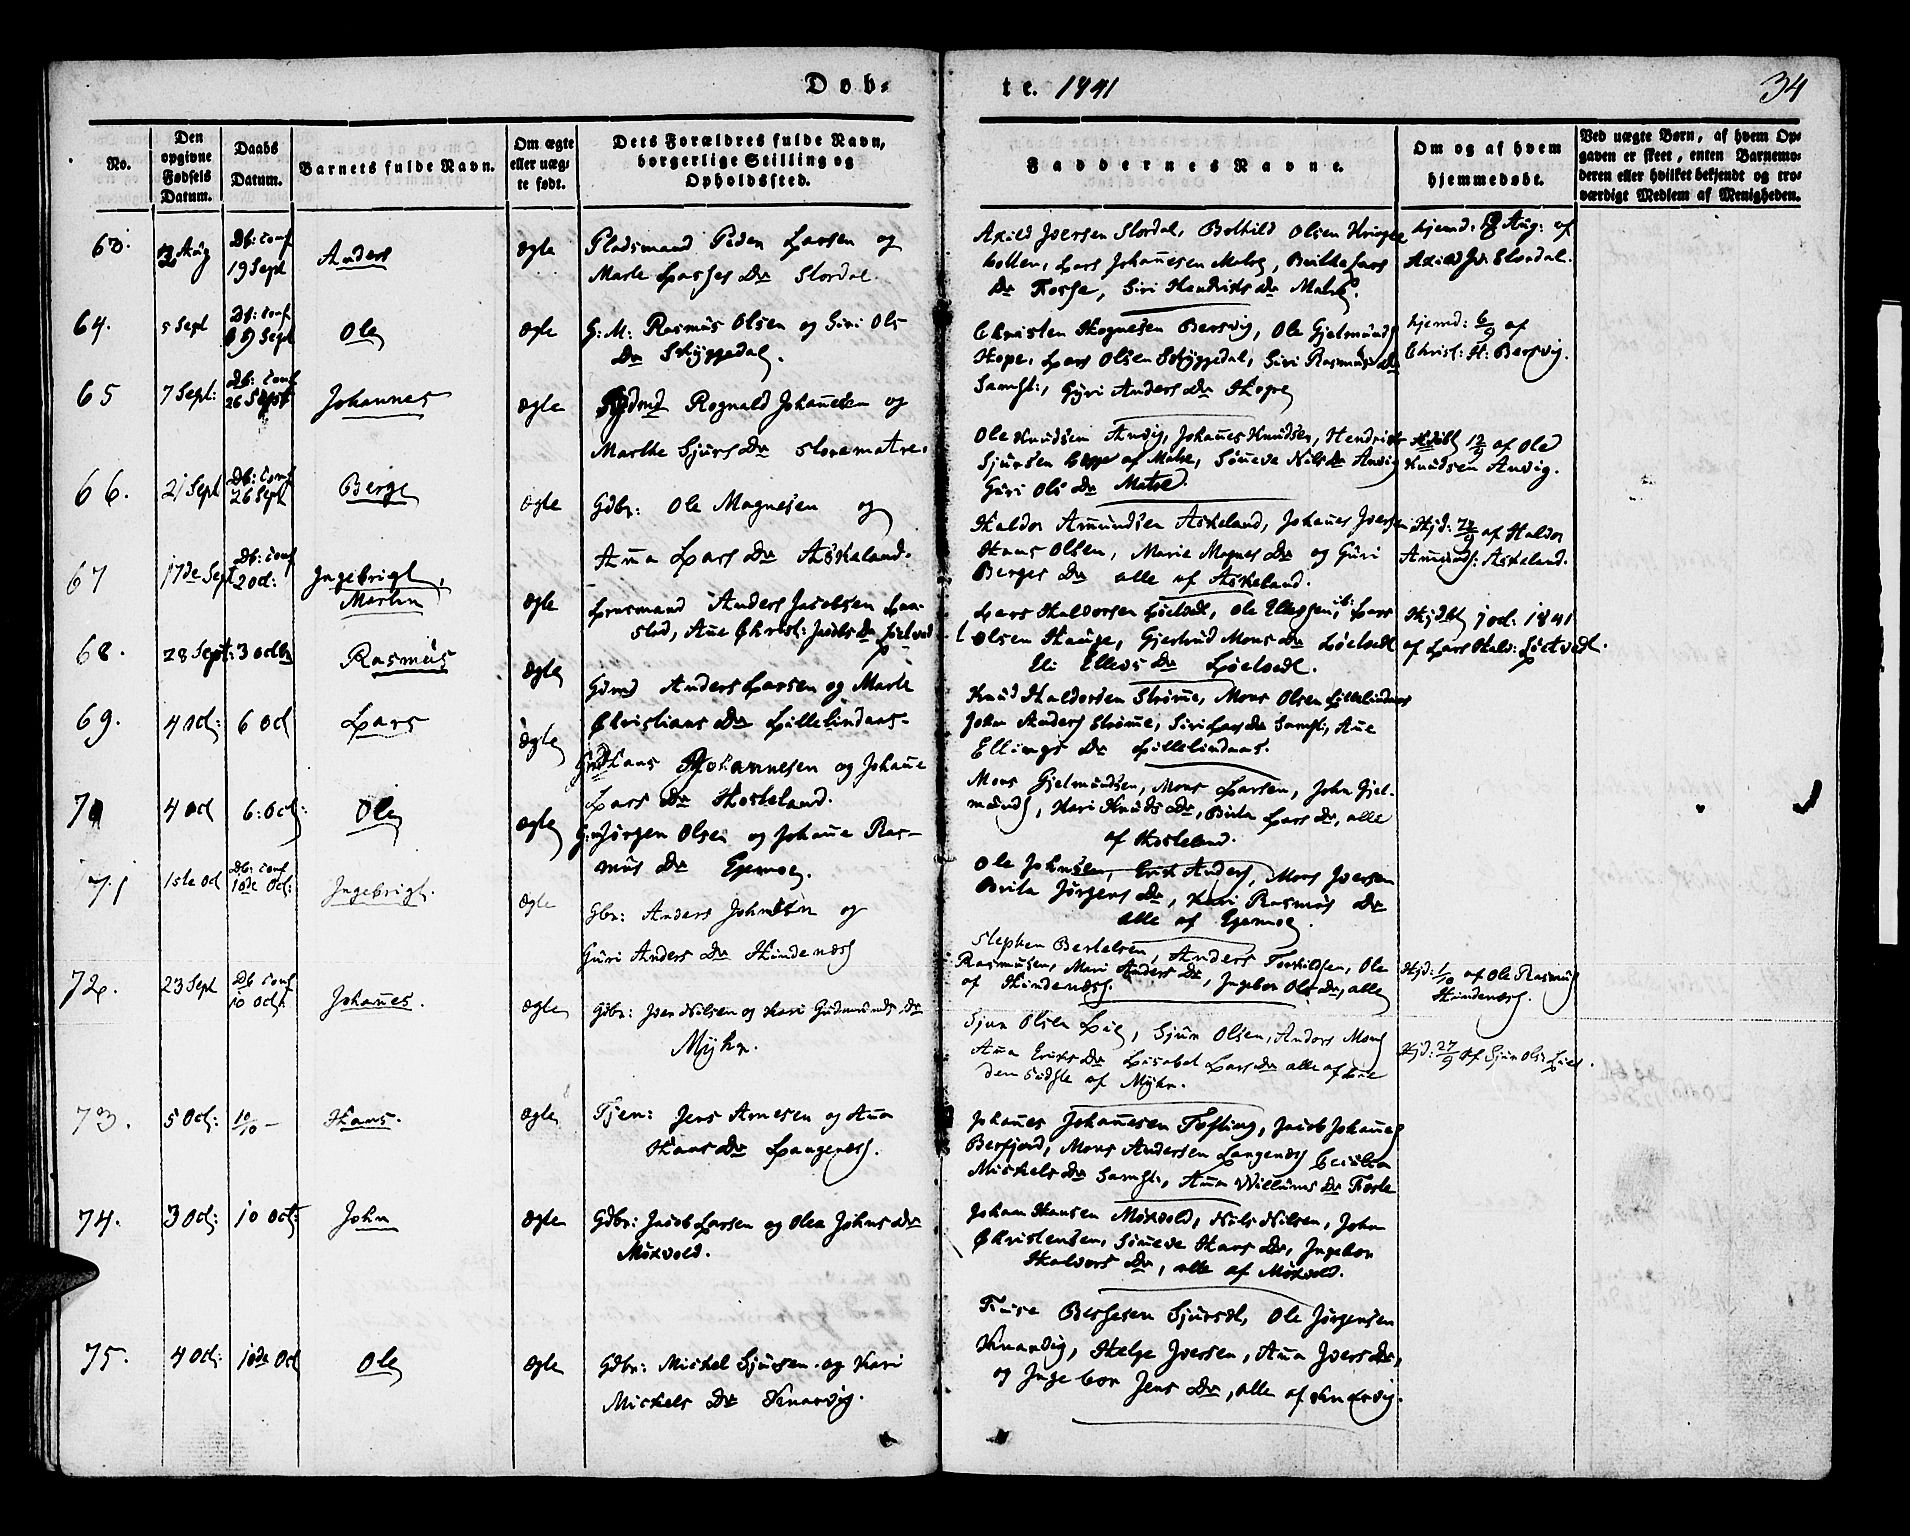 Døb-
te. 1841
34
No.
Den opgivne Fødsels Datum.
Daabs Datum.
Barnets fulde Navn.
Om ægte eller uæg-te født.
Dets Forældres fulde Navn, borgerlige Stilling og Opholdssted.
Faddernes Navne.
Om og af hvem hjemmedøbt.
Ved uægte Børn, af hvem Op-gaven er skeet, enten Barnemo-deren eller hvilket bekjendt og tro-værdigt Medlem af Menigheden.
63.
Aug
Db: conf
19 Sept
Anders
ægte
Pladsmand Peder Larsen og
Marte Lasses Dr Stordal.
Axild Iversen Stordal, Bothild Olsen
Lars Johannesen Matre,
Dr Fosse, Siri Hendriks Dr Matre.
hjemd: 8 Aug: af
Axild Iv: Stordal.
64.
5 Sept
Db: conf
19 Sept
Ole
ægte
G: M: Rasmus Olsen og Siri Ols
Dr Skyggedal.
Christen Hognesen Bersvig, Ole Gjelmunds
Hope, Lars Olsen Skyggedal, Siri Rasmus Dr
Samst:, Gyri Anders Dr Hope
hjemd: 6/9 af
Christ: H: Bersvig.
65
7 Sept:
Db: conf
26 Sept
Johannes
ægte
Rognald Johannesen og
Marthe Sjurs Dr Storematre.
Ole Knudsen Anvig, Johannes Knudsen, Hendrik
Sjursen begge af Matre, Sønneve Nils Dr Anvig
Guri Ols Dr Matre.
12/9 af Ole
Knudsen Anvig.
66.
21 Sept
Db: Conf
26 Sept
Berge
ægte
Gdbr: Ole Magnesen og
Anna Lars Dr Askeland.
Haldor Amundsen Askeland, Johannes Iversen
Hans Olsen, Marie Magnes Dr og Guri
Berges Dr alle af Askeland.
Hjd: af Haldor
Amunds: Askeland.
67
17de Sept
Db: conf
2 Oct:
Ingebrigt
Martin
ægte
Lensmand Anders Jacobsen
Ane Christ: Jacobs Dr
Lars Haldorsen Løtvedt, Ole Ellingsen ib: Lars
Olsen Hauge, Gjertrud Mons Dr Løtvedt
Eli Ellevs Dr Løtvedt.
Hjdbt 1 Oct: 1841
af Lars Hald: Løtvedt.
68.
28 Sept:
3 Octbr
Rasmus
ægte
Gdmd Anders Larsen og Marte
Christians Dr Lillelindaas.
Knud Haldorsen Strømme, Mons Olsen Lillelindaas
John Anders Strømme, Siri Lars Dr Samst:, Ane
Ellings Dr Lillelindaas.
69.
4 Oct:
6 Oct
Lars
ægte
Hans Johannesen og Johanne
Lars Dr Hosteland.
Mons Gjelmundsen, Mons Larsen, John Gjel-
munds, Kari Knuds Dr, Birta Lars Dr, alle
af Hosteland.
70
4 Oct
6: Oct:
Ole
ægte
Jørgen Olsen og Johanne Ras-
mus Dr
Ole Johnsen, Erik Anders, Mons Iversen
Brita Jørgens Dr, Kari Rasmus Dr
alle af
71
1ste Oct
Db: conf
10de Oct:
Ingebrigt.
ægte
Gbr: Anders Johnsen og
Guri Anders Dr Hundenæss
Stephen Bertelsen, Anders Torkildsen, Ole
Rasmussen, Mari Anders Dr, Ingebor Ols Dr, alle
af Hundenæss.
Hjd: 1/10 af Ole Rasmus
Hundenæss.
72.
23 Sept
Db conf
10 Oct:
Johannes.
ægte
Gdbr: Iver Nilsen og Kari Gudmunds Dr
Myhr.
Sjur Olsen Lie, Sjur Olsen, Anders Mons
Anna Eriks Dr Lisabet Lars Dr alle af Lie
den sidste af Myhr.
Hjd: 27/9 af Sjur Ols: Lie.
73.
5 Oct:
10/10 -
Hans.
ægte
Tjen: Jens Arnesen og Anna
Hans Dr Langenæss.
Johannes Johannesen Tofting, Jacob Johannes
Berfjord, Mons Andersen Langenæss Cecilia
Mickels Dr Samst:, Anna Willums Dr
74.
3 Oct:
10 Oct:
John
ægte
Gdbr: Jacob Larsen og Olea Johns Dr
Møxvold.
Johan Hansen Møxvold, Nils Nilsen, John
Christensen, Sønneve Hans Dr, Ingebor
Halvors Dr, alle af Møxvold.
75.
4 Oct:
10de Oct
Ole
ægte
Gdbr: Mickel Sjursen og Kari
Mickels Dr Knarvig.
Ole Jørgensen
Knarvig, Helge Iversen, Anna Ivers Dr,
og Ingebor Jens Dr, alle af Knarvig.